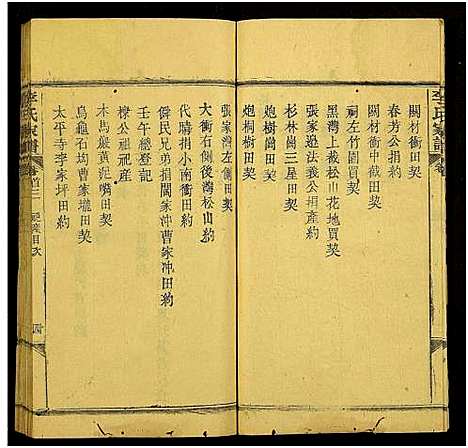 李氏家譜
關材衝田契
春芳公捐契
關材衝中截田契
祠左竹園買契
黑灣上截松山花地買契
張家邊法義公捐產約
杉林崗三星田契
炮樹崗田契
炮桐樹田契
張家灣左側田契
大衝右側後灣松山約
代購捐小南衝田約
僻民兄弟捐閣家冲曹家冲田約
壬午總登記
棣公祖祀產
木馬嚴黃泥嘴田契
烏龜石坳曹家壠田契
太平寺李家坪田約
李氏家譜
卷首三
祀產目次
四